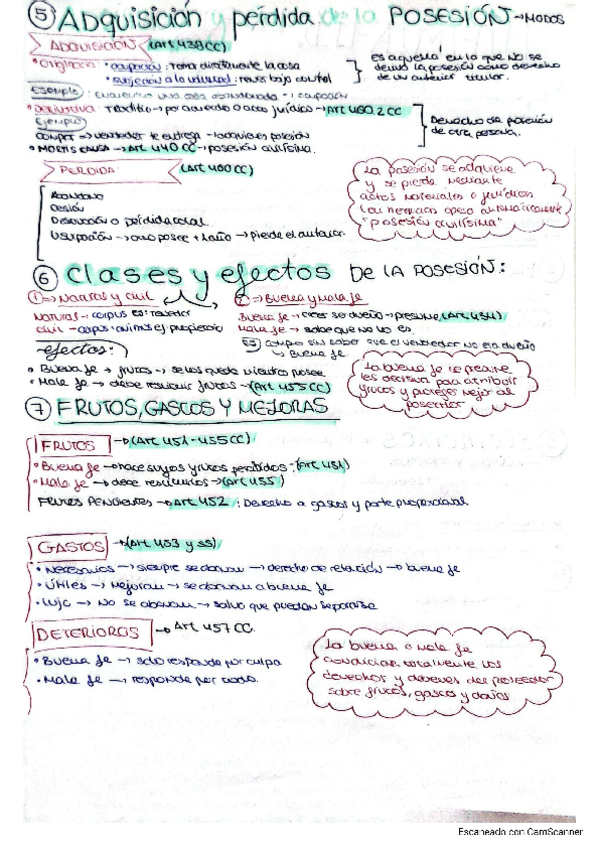 5 Adquisición y pérdida de la POSESIÓN → MODOS
ADQUISICIÓN (Art 438CC)
• Originaria • ocupación: Toma directamente la cosa
• sujeción a la voluntad: tenerlo bajo control
} es aquella en la que no se deriva la posesión como derecho de un anterior titular.
Ejemplo: encuentras una cosa abandonada → ocupación
• Derivativa: Traditio → por acuerdo o acto jurídico → Art 460.2 CC
Ejemplo
compra → vendedor te entrega → adquieres posesión
• MORTIS CAUSA → Art 440 CC → posesión civilísima.
} Derecho de posesión de otra persona.
PERDIDA: (Art 460 CC)
Abandono
cesión
Destrucción o pérdida total
Usurpación → otro posee + 1 año → pierde el anterior.
La posesión se adquiere
y se pierde mediante
actos materiales o jurídicos
"posesión civilísima"
6 Clases y efectos DE LA POSESIÓN:
1 → Natural y civil
Natural → corpus es: tenedor
civil → corpus + animus ej propietario
2 → Buena y Mala fe
Buena fe → cree ser dueño → presume (Art 434)
Mala fe → sabe que no lo es.
Ej compro sin saber que el vendedor no era dueño
↳ Buena fe
efectos:
• Buena fe → frutos → se los queda mientras posee
• Mala fe → debe restituir frutos → (Art 455 CC)
La buena fe se presume
y es decisiva para atribuir
frutos y proteger mejor al
poseedor
7 FRUTOS, GASTOS Y MEJORAS
FRUTOS → (Art 451-455CC)
• Buena fe → hace suyos frutos percibidos: (Art 451)
• Mala fe → debe restituirlos → (Art 455)
FRUTOS PENDIENTES → Art 452: Derecho a gastos y parte proporcional
GASTOS → (Art 453 y ss)
• Necesarios → siempre se abonan → derecho de retención → buena fe
• Útiles → Mejoran → se abonan a buena fe
• Lujo → No se abonan → salvo que puedan separarse
DETERIOROS → Art 457 CC.
• Buena fe → solo responde por culpa
• Mala fe → responde por todo.
La buena o mala fe
condicionan totalmente los
derechos y deberes del poseedor
sobre frutos, gastos y daños
Escaneado con CamScanner